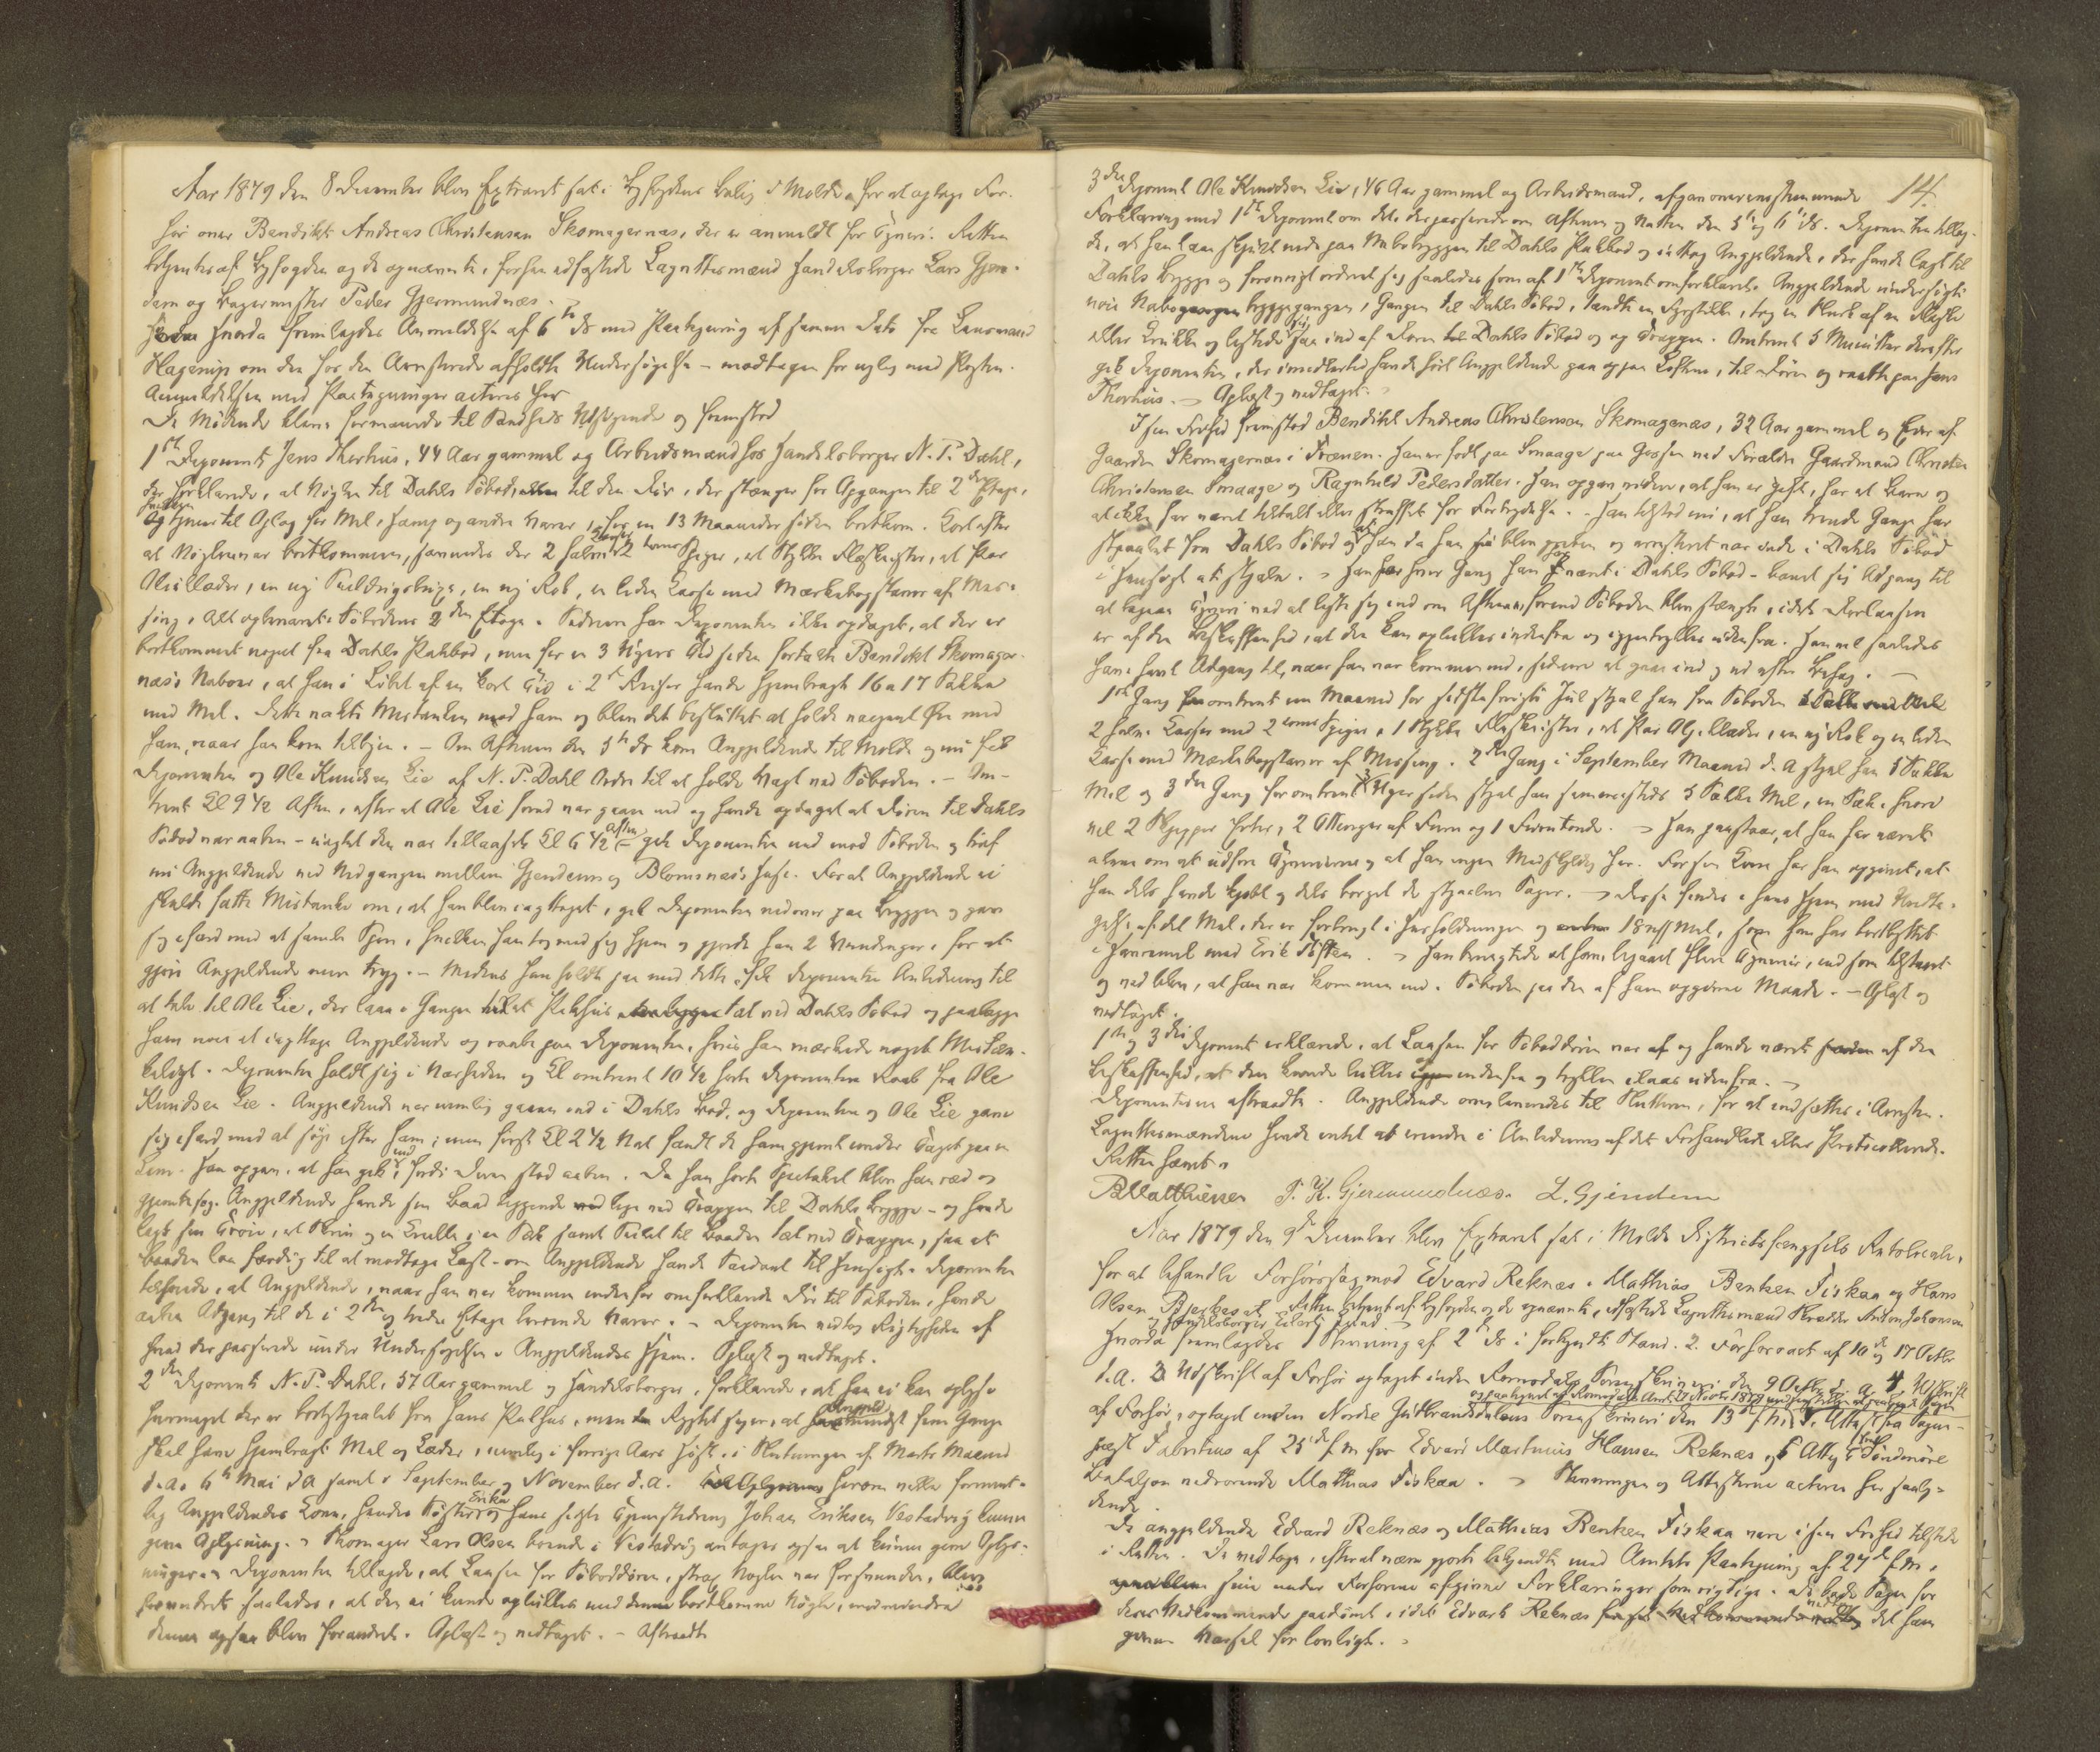 Aar 1879 den 8 December blev Extraret sat i Byfogdens Bolig i Molde for at optage For-
hør over Bendikt Andreas Christensen Skomagernæs, der er anmeldt for Tyveri. Retten
betjentes af Byfogden og de opnævnte, forhen edfæstede Lagrettesmænd Handelsborger Lars Gjen-
dem og Bagermester Peder Gjermundnæs.
Hvorda fremlagdes Anmeldelse af 6te ds med Paategning af samme Dato fra Lensmand
Hagerup om den hos den Arresterede afholdte Undersøgelse - modtagen for nylig med Posten.
Anmeldelsen med Paategninger acteres her
De Mødende bleve formanede til Sandheds Udsigende og fremstod
1ste Deponent Jens Thorhus, 44 Aar gammel og Arbeidsmand hos Handelsborger N. P. Dahl,
der forklarede, at Nøglen til Dahls Søbod, til den Dør, der stænger for Opgangen til 2den Etage,
hvilken tjener til Oplag for Mel, Hamp og andre Varer, for en 13 Maaneder siden bortkom. Kort efter
at Nøglen var bortkommen, savnedes der 2 halve Kasser 2 toms Spiger, et Stykke Fleskeister, et Par
Olieklæder, en ny Sældrigstrige, en ny Rok, en liden Kasse med Mærkebogstaver af Mes-
sing, Alt opbevaret i Søbodens 2den Etage. Siden har Deponenten ikke opdaget, at der er
bortkommet noget fra Dahls Pakbod, men for en 3 Ugers Tid siden fortalte Bendikt Skomager-
næs's Naboer, at han i Løbet af en kort Tid i 2 Reiser havde hjembragt 16 a 17 Sække
med Mel. Dette vakte Mistanken mod ham og blev det besluttet at holde vaagent Øie med
ham, naar han kom tilbyen. - Om Aftenen den 5te ds kom Angjeldende til Molde og nu fik
Deponenten og Ole Knudsen Lie af N. P. Dahl Ordre til at holde Vagt ved Søboden. - Om-
trent Kl 9½ Aften, efter at Ole Lie forud var gaaen ned og havde opdaget at Døren til Dahls
Søbod var aaben - uagtet den var tillaaset Kl 6½ Aften - gik Deponenten ned mod Søboden og traf
nu Angjeldende ved Nedgangen mellem Gjendems og Blomsnæs's Huse. For at Angjeldende ei
skulde fatte Mistanke om, at han blev iagttaget, gik Deponenten nedover paa Bryggen og gav
sig ifærd med at samle Spon, hvilken han tog med sig hjem og gjorde han 2 Vendinger, for at
gjøre Angjeldende mere tryg. - Medens han holdt paa med dette, fik Deponenten Anledning til
at tale til Ole Lie, der laa i Gangen ved et Pakhus tæt ved Dahls Søbod og paalægge
ham nøie at iagttage Angjeldende og raabe paa Deponenten, hvis han mærkede noget Mistæn-
keligt. Deponenten holdt sig i Nærheden og Kl omtrent 10½ hørte Deponenten Raab fra Ole
Knudsen Lie. Angjeldende var nemlig gaaen ind i Dahls Bod, og Deponenten og Ole Lie gave
sig ifærd med at søge efter ham, men først Kl 2½ Nat fandt de ham gjemt under Taget paa en
Lem. Han opgav, at han gik ind, fordi Døren stod aaben. Da han hørte Spetakel blev han ræd og
gjemte sig. Angjeldende havde sin Baad liggende lige ved Trappen til Dahls Brygge - og havde
lagt sin Trøie, et Skrin og en Krukke i en Sæk samt Seilet til Baaden tæt ved Trappen, saa at
Baaden laa færdig til at modtage Last - om Angjeldende havde Saadant til Hensigt. Deponenten
tilføiede, at Angjeldende, naar han var kommen indenfor omforklarede Dør til Søboden, havde
aaben Adgang til de i 2den og tredie Etage beroende Varer. - Deponenten vedtog Rigtigheden af
hvad der passerede under Undersøgelsen i Angjeldendes Hjem. Oplæst og vedtaget.
2den Deponent N. P. Dahl, 57 Aar gammel og Handelsborger, forklarede, at han ei kan oplyse
hvormeget der er bortstjaalet fra hans Pakhus, men Rygtet siger, at Angjeld. mindst fem Gange
skal have hjembragt Mel og Læder, nemlig i forrige Aars Høst, i Slutningen af Marts Maaned
d.a. 6te Mai d.a. samt i September og November d.a. herom vilde forment-
lig Angjeldendes Kone, hendes Søster Erika og hans sidste Tjenestedreng Johan Eriksen Vestadvig kunne
give Oplysning. Skomager Lars Olsen boende i Vestadvig antages ogsaa at kunne give Oplys-
ninger. Deponenten tillagde, at Laasen for Søboddøren, strax Nøglen var forsvunden, blev
forandret saaledes, at den ei kunde oplukkes med den bortkomne Nøgle, medmindre
denne ogsaa blev forandret. Oplæst og vedtaget. - Aftraadte
14.
3die Deponent Ole Knudsen Lie, 46 Aar gammel og Arbeidsmand, afgav overensstemmende
Forklaring med 1ste Deponent om det, der passerede om Aftenen og Natten den 5te og 6te ds. Deponenten tillag-
de, at han laa skjult nede paa Nabobryggen til Dahls Pakbod og iagttog Angjeldende, der havde lagt til
Dahls Brygge og forøvrigt ordnet sig saaledes som af 1ste Deponent omforklaret. Angjeldende undersøgte
nøie Nabobryggegangen, Gangen til Dahls Søbod, tændte en Fyrstikke, tog en Slurk af en Flaske
eller Krukke og listede sig saa ind af Døren til Dahls Søbod og op Trappen. Omtrent 5 Minutter derefter
gik Deponenten, der imidlertid havde hørt Angjeldende gaa oppaa Lofterne, til Døren og raabte paa Jens
Thorhus. - Oplæst og vedtaget.
I sin Frihed fremstod Bendikt Andreas Christensen Skomagernæs, 32 Aar gammel og Eier af
Gaarden Skomagernæs i Frænen. Han er født paa Smaage paa Gossen ved Forældre Gaardmand Christen
Christensen Smaage og Ragnhild Pedersdatter. Han opgav videre, at han er gift, har et Barn og
at ikke har været tiltalt eller straffet for Forbrydelse. - Han tilstod nu, at han trende Gange har
stjaalet fra Dahls Søbod og at han da han nu blev greben og arresteret var inde i Dahls Søbod
i Hensigt at stjæle. Han har hver Gang han har været i Dahls Søbod - banet sig Adgang til
at begaa Tyveri ved at liste sig ind om Aftenen, forend Søboden blev stængt, idet Dørlaasen
er af den Beskaffenhed, at den kan oplukkes indenfra og igjentrykkes udenfra. Han vil saaledes
have havt Adgang til, naar han var kommen ind, siden at gaa ind og ud efter Behag. -
1ste Gang omtrent en Maaned før sidstafvigte Jul stjal han fra Søboden
2 halve Kasser med 2 toms Spiger, 1 Stykke Fleskeister, et Par Oljeklæder, en ny Rok og en liden
Kasse med Mærkebogstaver af Messing. 2den Gang i September Maaned d. A stjal han 5 Sække
Mel og 3die Gang for omtrent 3 Uger siden stjal han sammesteds 5 Sække Mel, en Sæk, hvori
vel 2 Skjepper Erter, 2 Ottinger af Furu og 1 Furutønde. Han paastaar, at han har været
alene om at udføre Tyverierne og at han ingen Medskyldig har. For sin Kone har han opgivet, at
han dels havde kjøbt og dels borget de stjaalne Sager. Disse findes i hans Hjem med Undta-
gelse af det Mel, der er forbrugt i Husholdningen og 18 Mel, som han har bortbyttet
i Havremel med Erik Tøften. Han benegtede at have begaaet flere Tyverier, end som tilstaaet
og vedblev, at han var kommen ind i Søboden paa den af ham opgivne Maade. - Oplæst og
vedtaget.
1ste og 3die Deponent erklærede, at Laasen for Søboddøren var af og havde været af den
Beskaffenhed, at den kunde lukkes op indenfra og trykkes ilaas udenfra. -
Deponenterne aftraadte. Angjeldende overleveredes til Slutteren, for at indsættes i Arresten.
Lagrettesmændene havde intet at erindre i Anledning af det Forhandlede eller Protocollerede.
Retten hævet.
P. K. Gjermundnæs. L. Gjendem
Aar 1879 den 9de December blev Extraret sat i Molde Distriktsfængsels Retslocale,
for at behandle Forhørssag mod Edvard Reknæs, Mathias Benken Fiskaa og Hans
Olsen Bjerkeset. Retten betjent af Byfogden og de opnævnte, edfæstede Lagrettesmænd Skrædder Anton Johansen
og Handelsborger Edvard Lund -
Hvorda fremlagdes 1 Stevning af 2de ds i forkyndt Stand. 2. Forhørsact af 10de og 17 Octbr
d.a. 3 Udskrift af Forhør optaget inden Romsdals Sorenskriveri den 9 Octbr d. a. 4 Udskrift
af Forhør, optaget inden Nordre Gudbrandsdalens Sorenskriveri den 13de f.M. 5. Attest fra Sogne-
præst Fabritius af 25de f.M for Edvard Martinius Hansen Reknæs og 6 Attest fra Søndmøre
Bataljon vedrørende Mathias Fiskaa. Stevningen og Attesterne acteres her saaly-
dende.
De angjeldende Edvard Reknæs og Mathias Benken Fiskaa vare i sin Frihed tilstede
i Retten. De vedtoge, efter at være gjorte bekjendte med Amtets Paategning af 27de f.M.
sine under Forhørene afgivne Forklaringer som rigtige. De bade Sagen for
deres Vedkommende paadømt, idet Edvard Reknæs vedtog det ham
givne Varsel for lovligt.